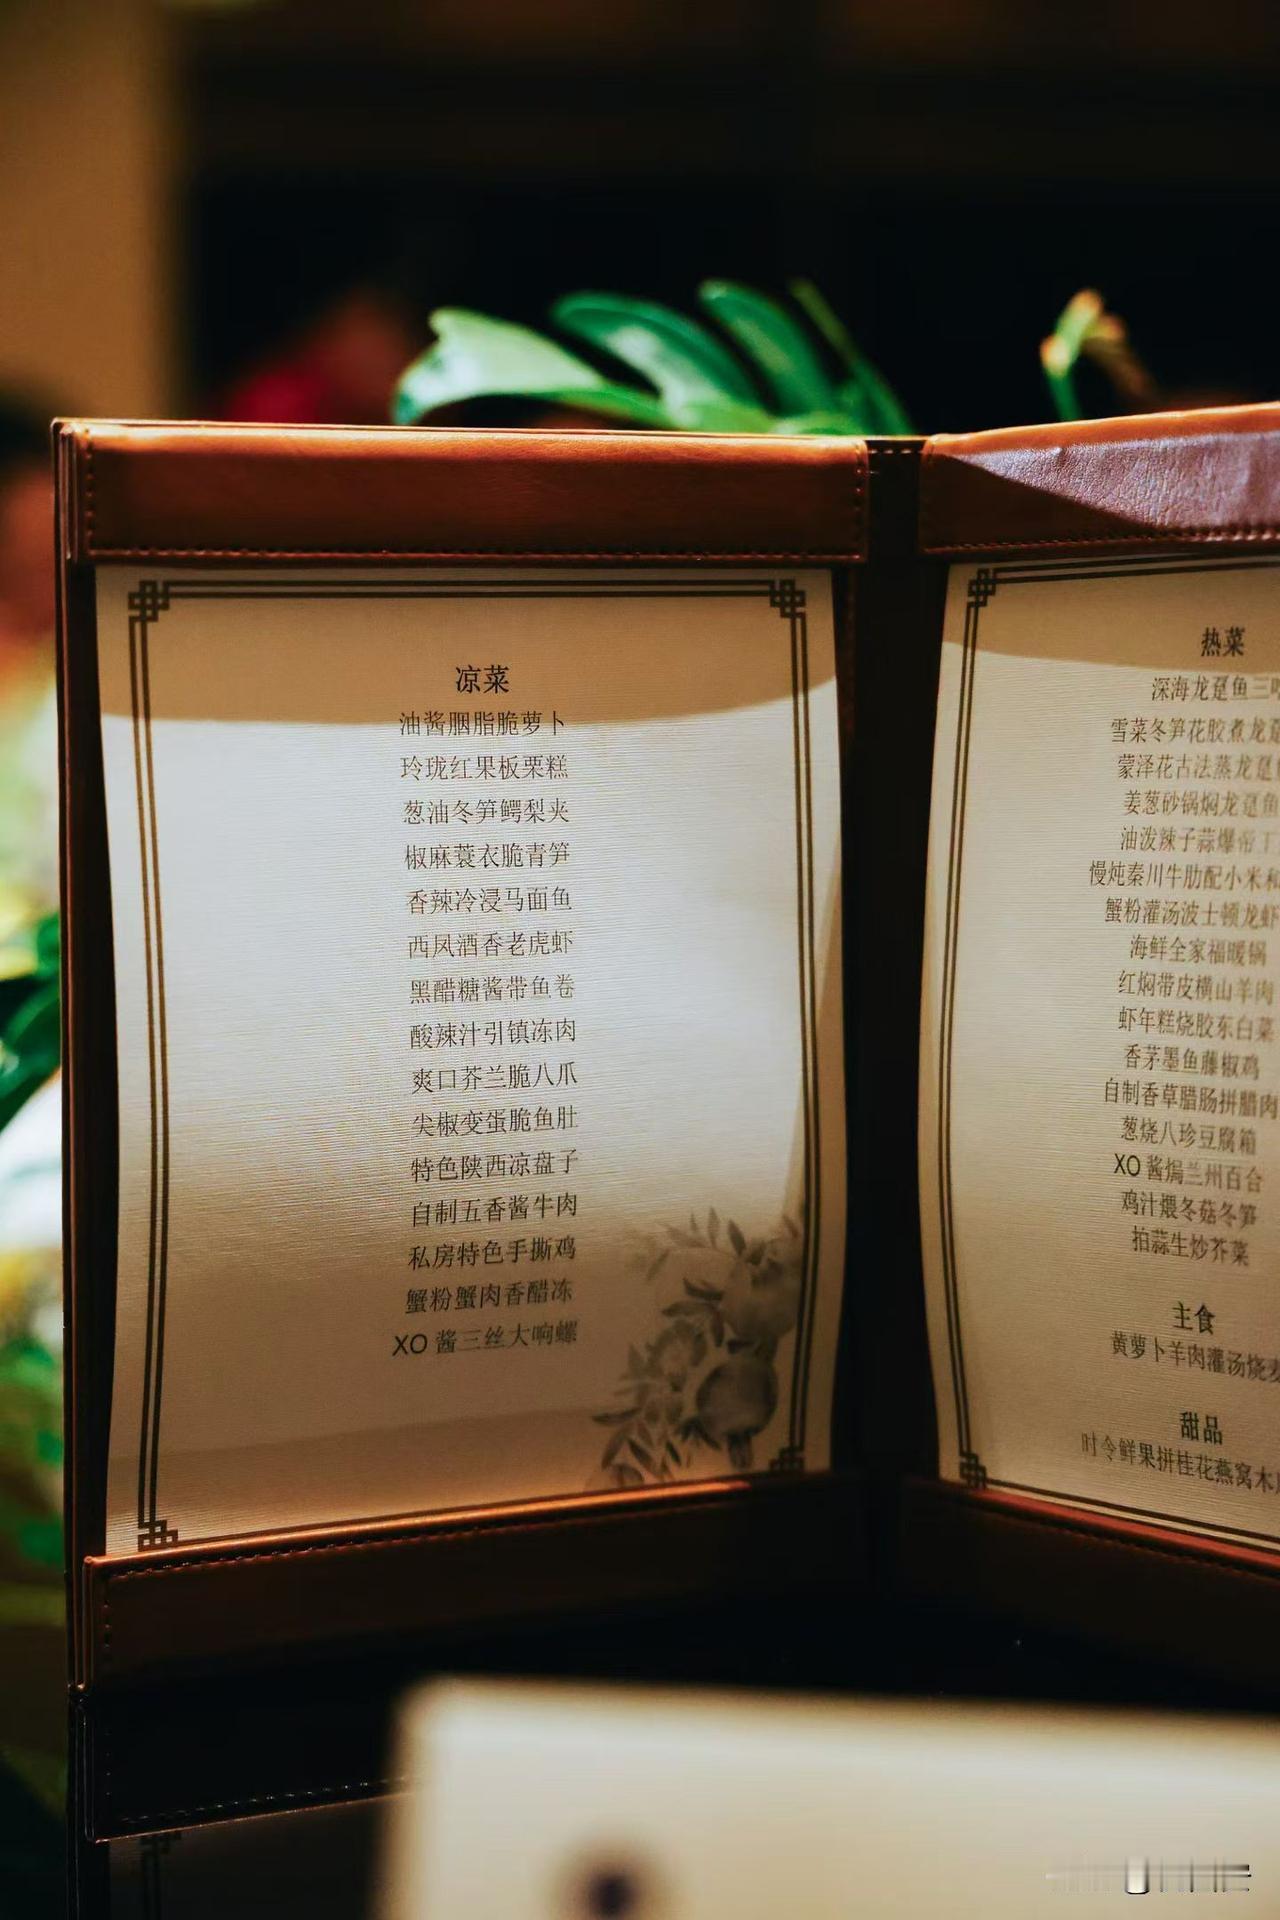 凉菜
油酱胭脂脆萝卜
玲珑红果板栗糕
葱油冬笋鳄梨夹
椒麻蓑衣脆青笋
香辣冷浸马面鱼
西凤酒香老虎虾
黑醋糖酱带鱼卷
酸辣汁引镇冻肉
爽口芥兰脆八爪
尖椒变蛋脆鱼肚
特色陕西凉盘子
自制五香酱牛肉
私房特色手撕鸡
蟹粉蟹肉香醋冻
XO 酱三丝大响螺
热菜
深海龙趸鱼三
雪菜冬笋花胶煮龙趸
蒙泽花古法蒸龙趸
姜葱砂锅焗龙趸鱼
油泼辣子蒜爆帝丁
慢炖秦川牛肋配小米和
蟹粉灌汤波士顿龙虾
海鲜全家福暖锅
红焖带皮横山羊肉
虾年糕烧胶东白菜
香茅墨鱼藤椒鸡
自制香草腊肠拼腊肉
葱烧八珍豆腐箱
XO 酱焗兰州百合
鸡汁煨冬菇冬笋
拍蒜生炒芥菜
主食
黄萝卜羊肉灌汤烧麦
甜品
时令鲜果拼桂花燕窝木